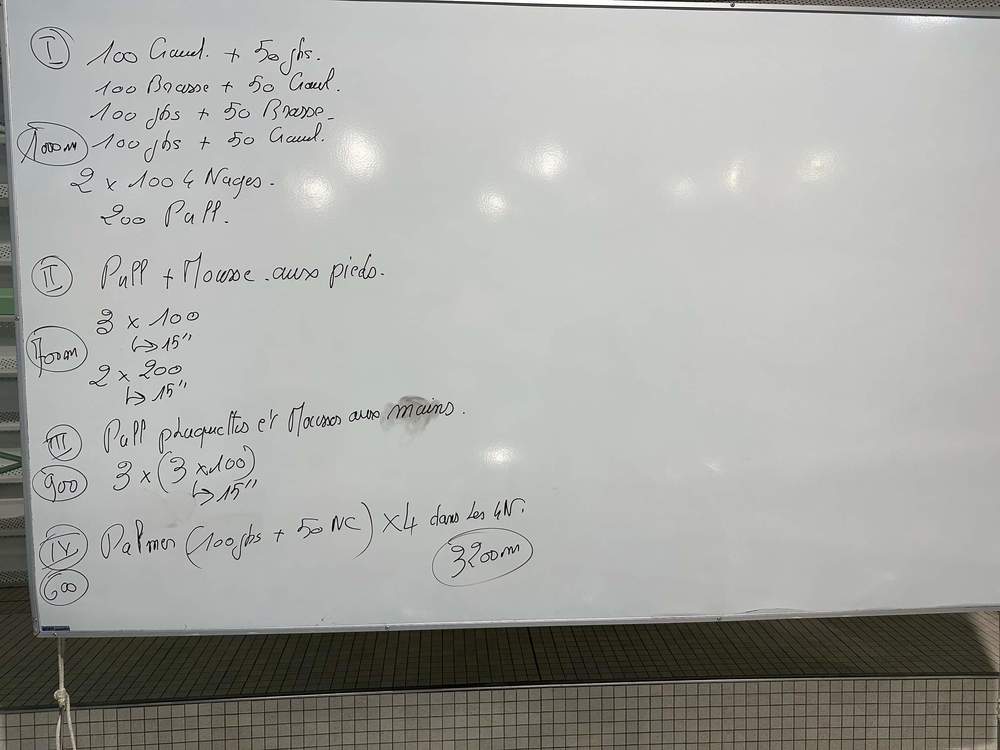 I 100 Crawl. + 50 jbs.
100 Brasse + 50 Crawl.
100 jbs + 50 Brasse.
1000m 100 jbs + 50 Crawl.
2 x 100 4 Nages.
200 Pull.
II Pull + Mousse aux pieds.
3 x 100
↳ 15"
700m
2 x 200
↳ 15"
III Pull plaquettes et Mousses aux mains.
900 3 x (3 x 100)
↳ 15"
IV Palmes (100 jbs + 50 NC) x 4 dans les 4N.
600 3200m